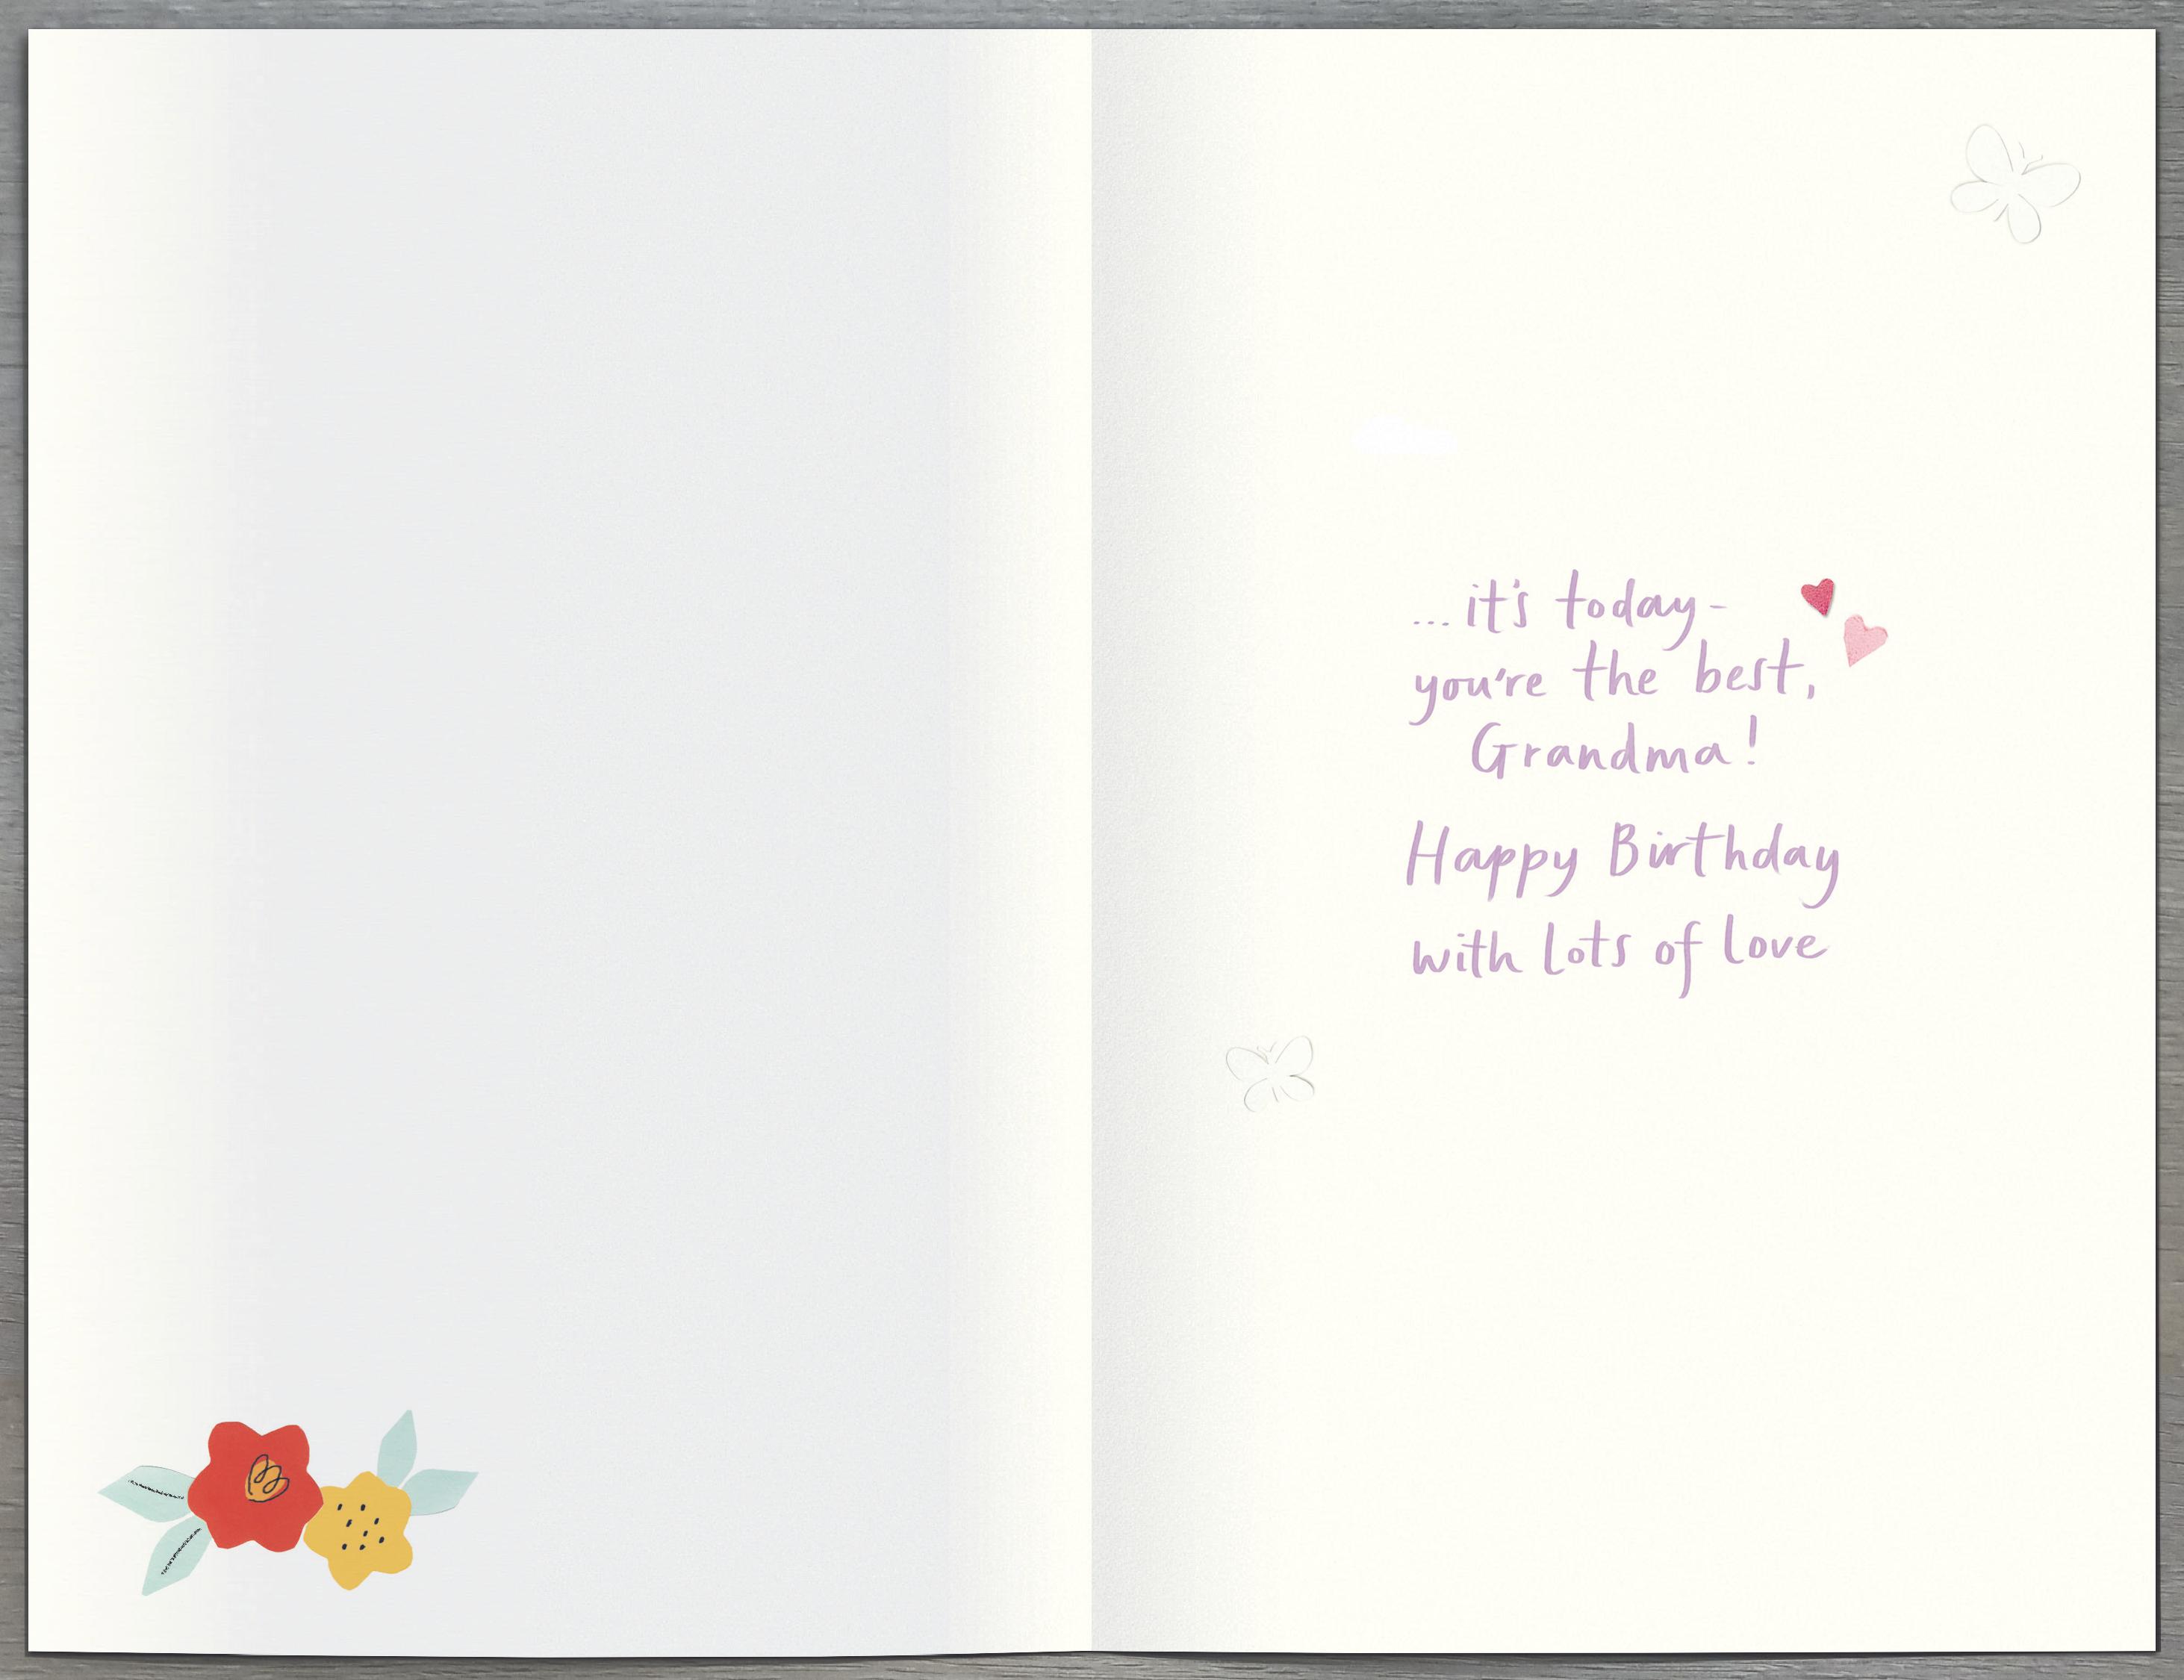 ...it's today-
you're the best,
Grandma!
Happy Birthday
with lots of love